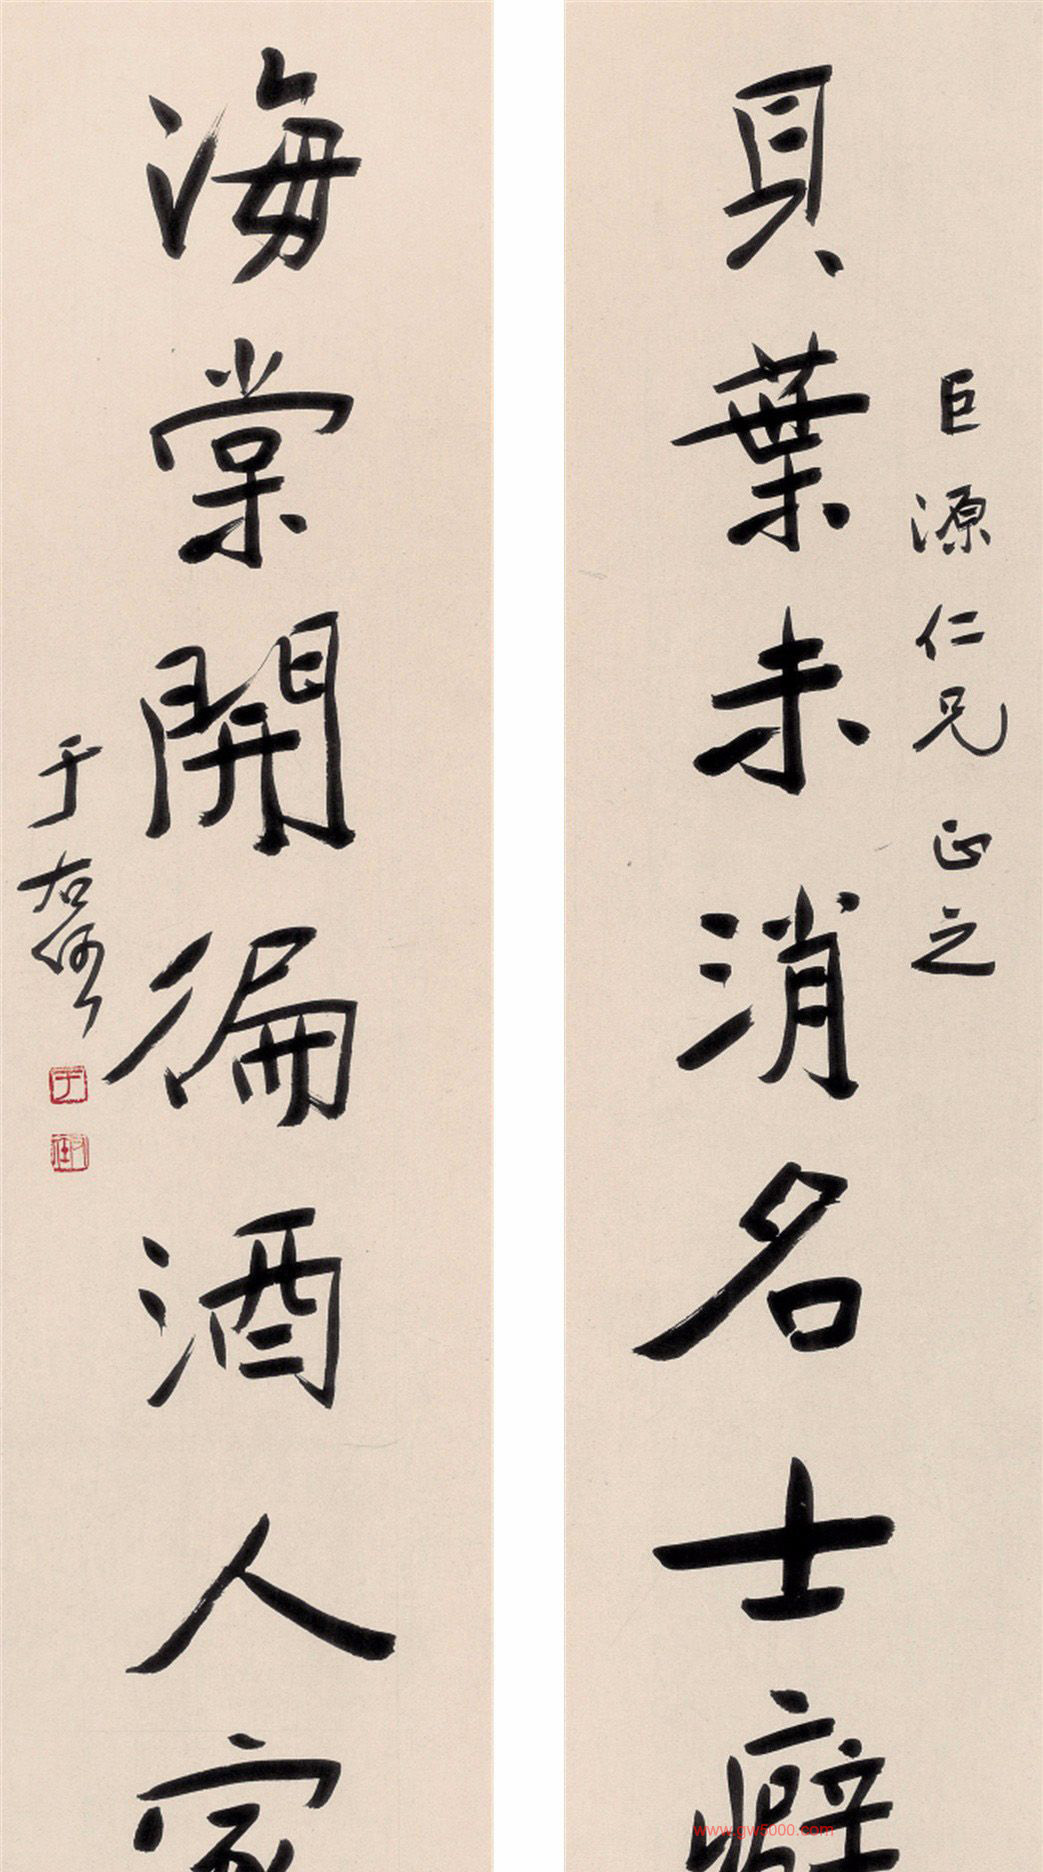 巨源仁兄正之
貝葉未消名士癖
海棠開徧酒人家
于右任
www.gw5000.com